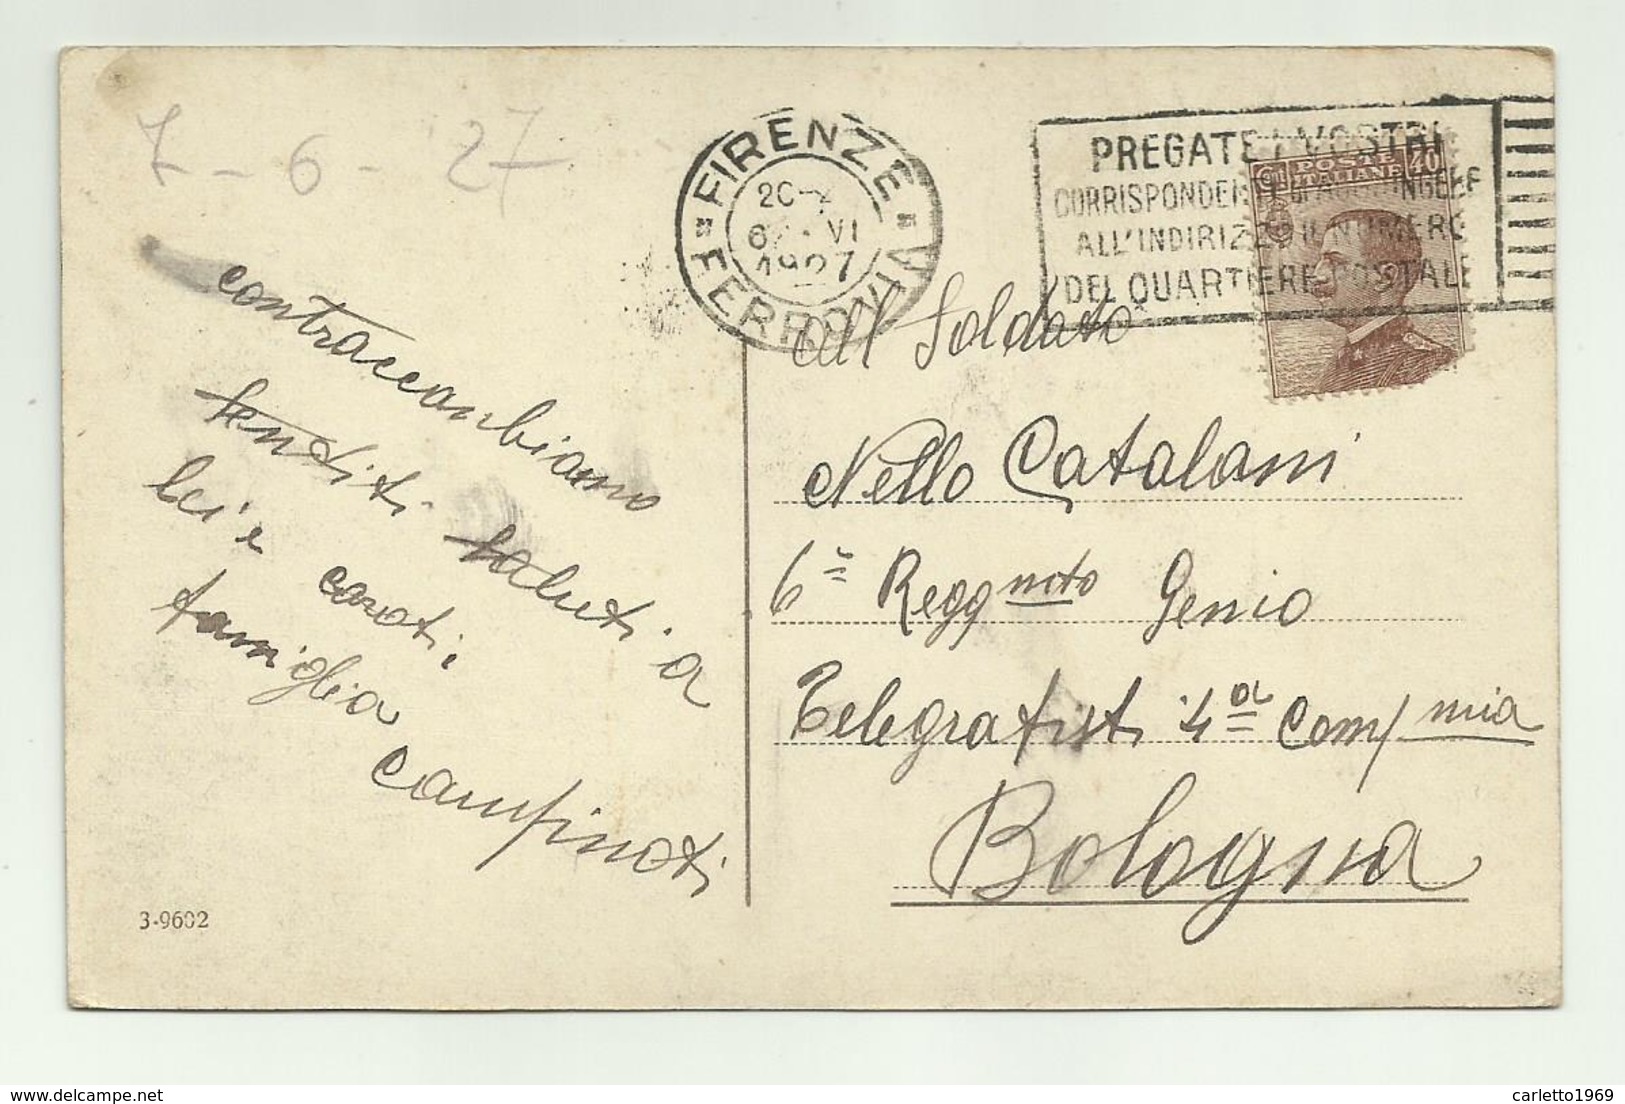 7 - 6 - '27
FIRENZE
FERROVIA
20-
6 VI
1927
PREGATE I VOSTRI
CORRISPONDENTI DI AGGIUNGERE
ALL'INDIRIZZO IL NUMERO
DEL QUARTIERE POSTALE
POSTE
ITALIANE
40
contraccambiamo
sentiti saluti a
lei e
famiglia
Campinoti
All Soldato
Nello Catalani
6º Regg mto Genio
Telegrafisti 4 a Comp/ mia
Bologna
3-9602
carletto1969